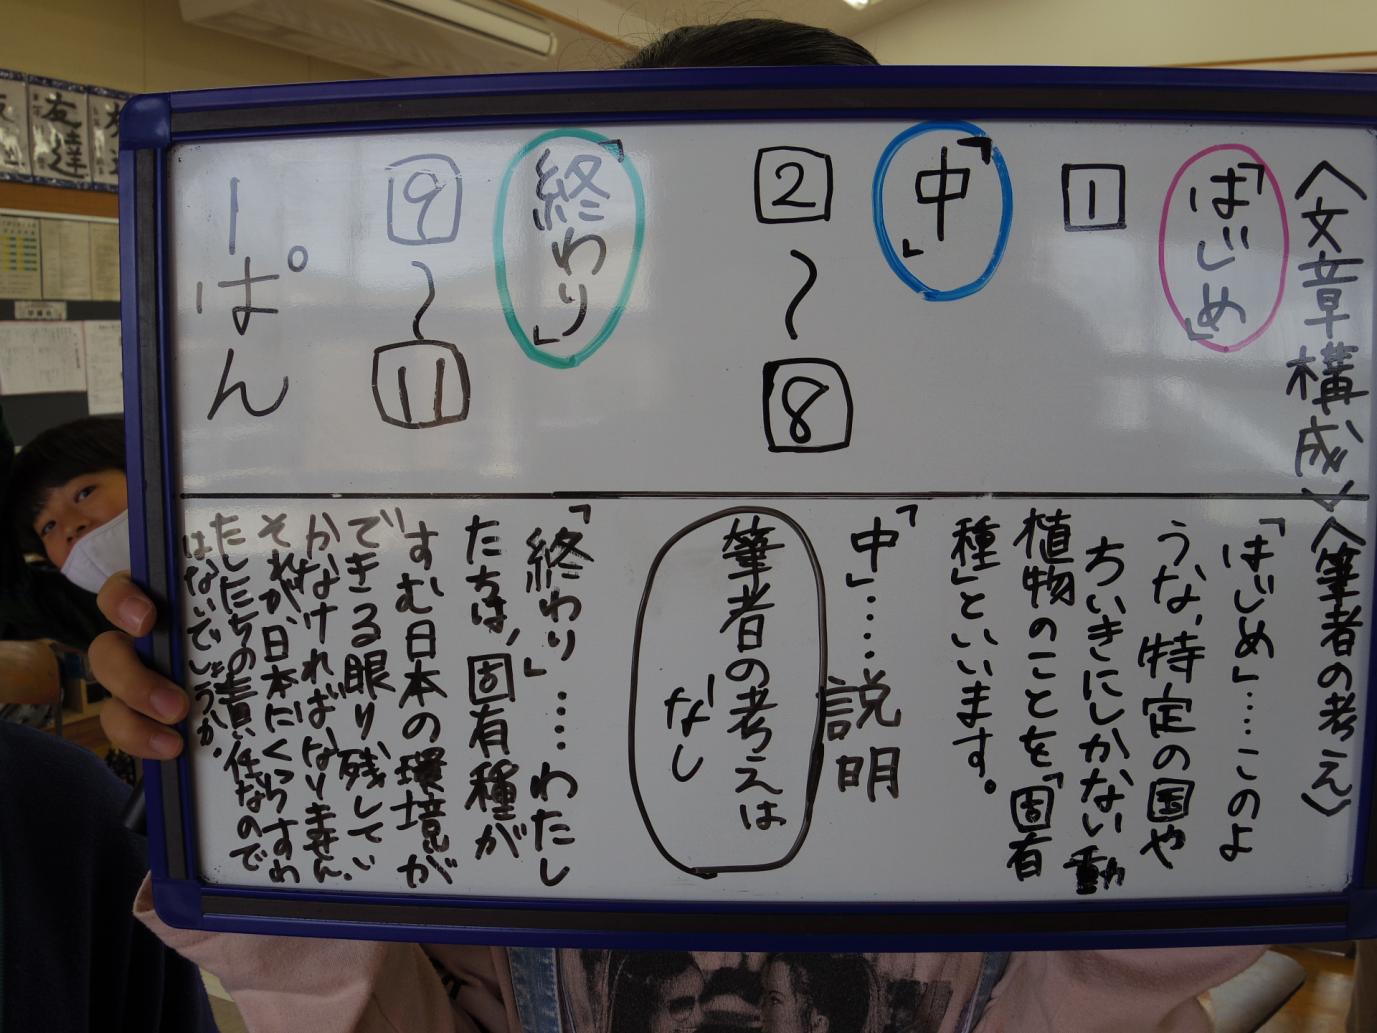 〈文章構成〉
「はじめ」
1
「中」
2
〜
8
「終わり」
9
〜
11
1ぱん
〈筆者の考え〉
「はじめ」……このよ
うな、特定の国や
ちいきにしかない動
植物のことを「固有
種」といいます。
「中」……説明
筆者の考えは
なし
「終わり」……わたし
たちは、固有種が
すむ日本の環境が
できる限り残してい
かなければなりません。
それが、日本にくらすわ
たしたちの責い任なので
はないでしょうか。
友達